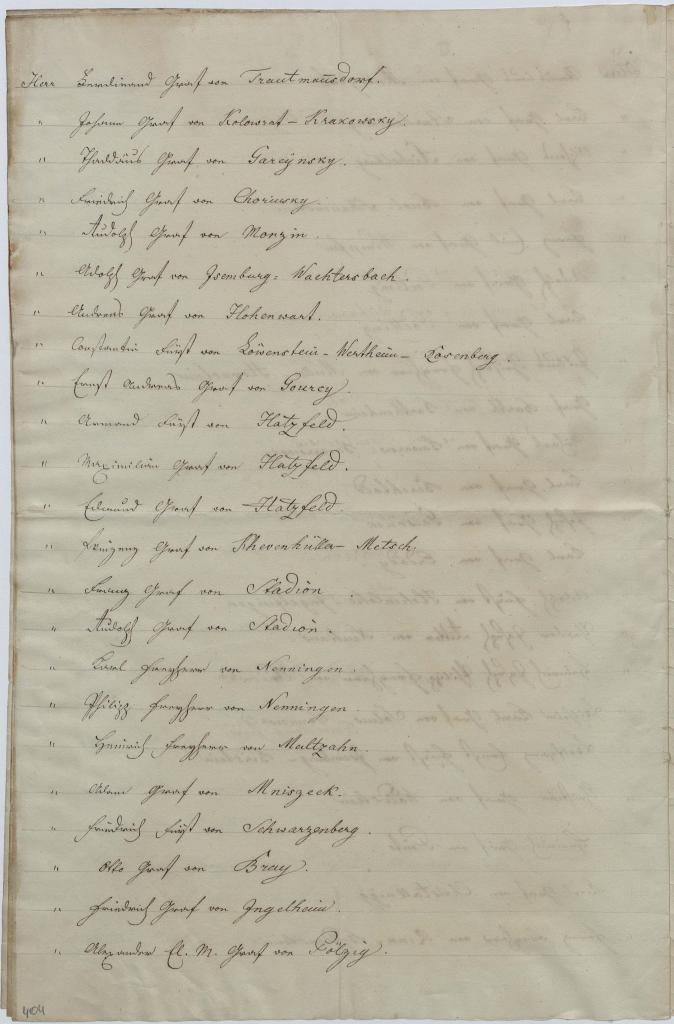 Herr Ferdinand Graf von Trautmansdorf.
" Johann Graf von Kolowrat - Krakowsky.
" Thaddäus Graf von Garcÿnsky.
" Friedrich Graf von Chorinsky.
" Rudolph Graf von Monzin.
" Adolph Graf von Isemburg: Wachtersbach.
" Andreas Graf von Hohenwart.
" Constantin Fürst von Löwenstein - Wertheim - Rosenberg.
" Ernst Andreas Graf von Gourcy.
" Armand Fürst von Hatzfeld.
" Maximilian Graf von Hatzfeld.
" Edmund Graf von Hatzfeld.
" Graf von Khevenhüller - Metsch.
" Franz Graf von Stadion.
" Rudolph Graf von Stadion.
" Karl Freyherr von Nenningen.
" Philipp Freyherr von Nenningen.
" Heinrich Freyherr von Maltzahn.
" Adam Graf von Mniszeck.
" Friedrich Fürst von Schwarzenberg.
" Otto Graf von Bray.
" Friedrich Graf von Ingelheim.
" Alexander El. M. Graf von Pölzig.
404